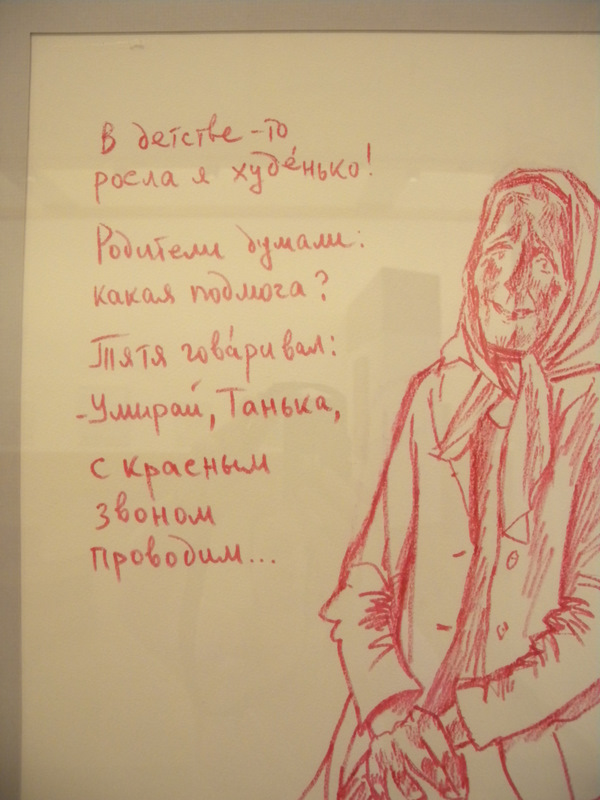 В детстве-то
росла я худе́нько!
Родители думали:
какая подмога?
Тятя гова́ривал:
-Умирай, Танька,
с красным
звоном
проводим...